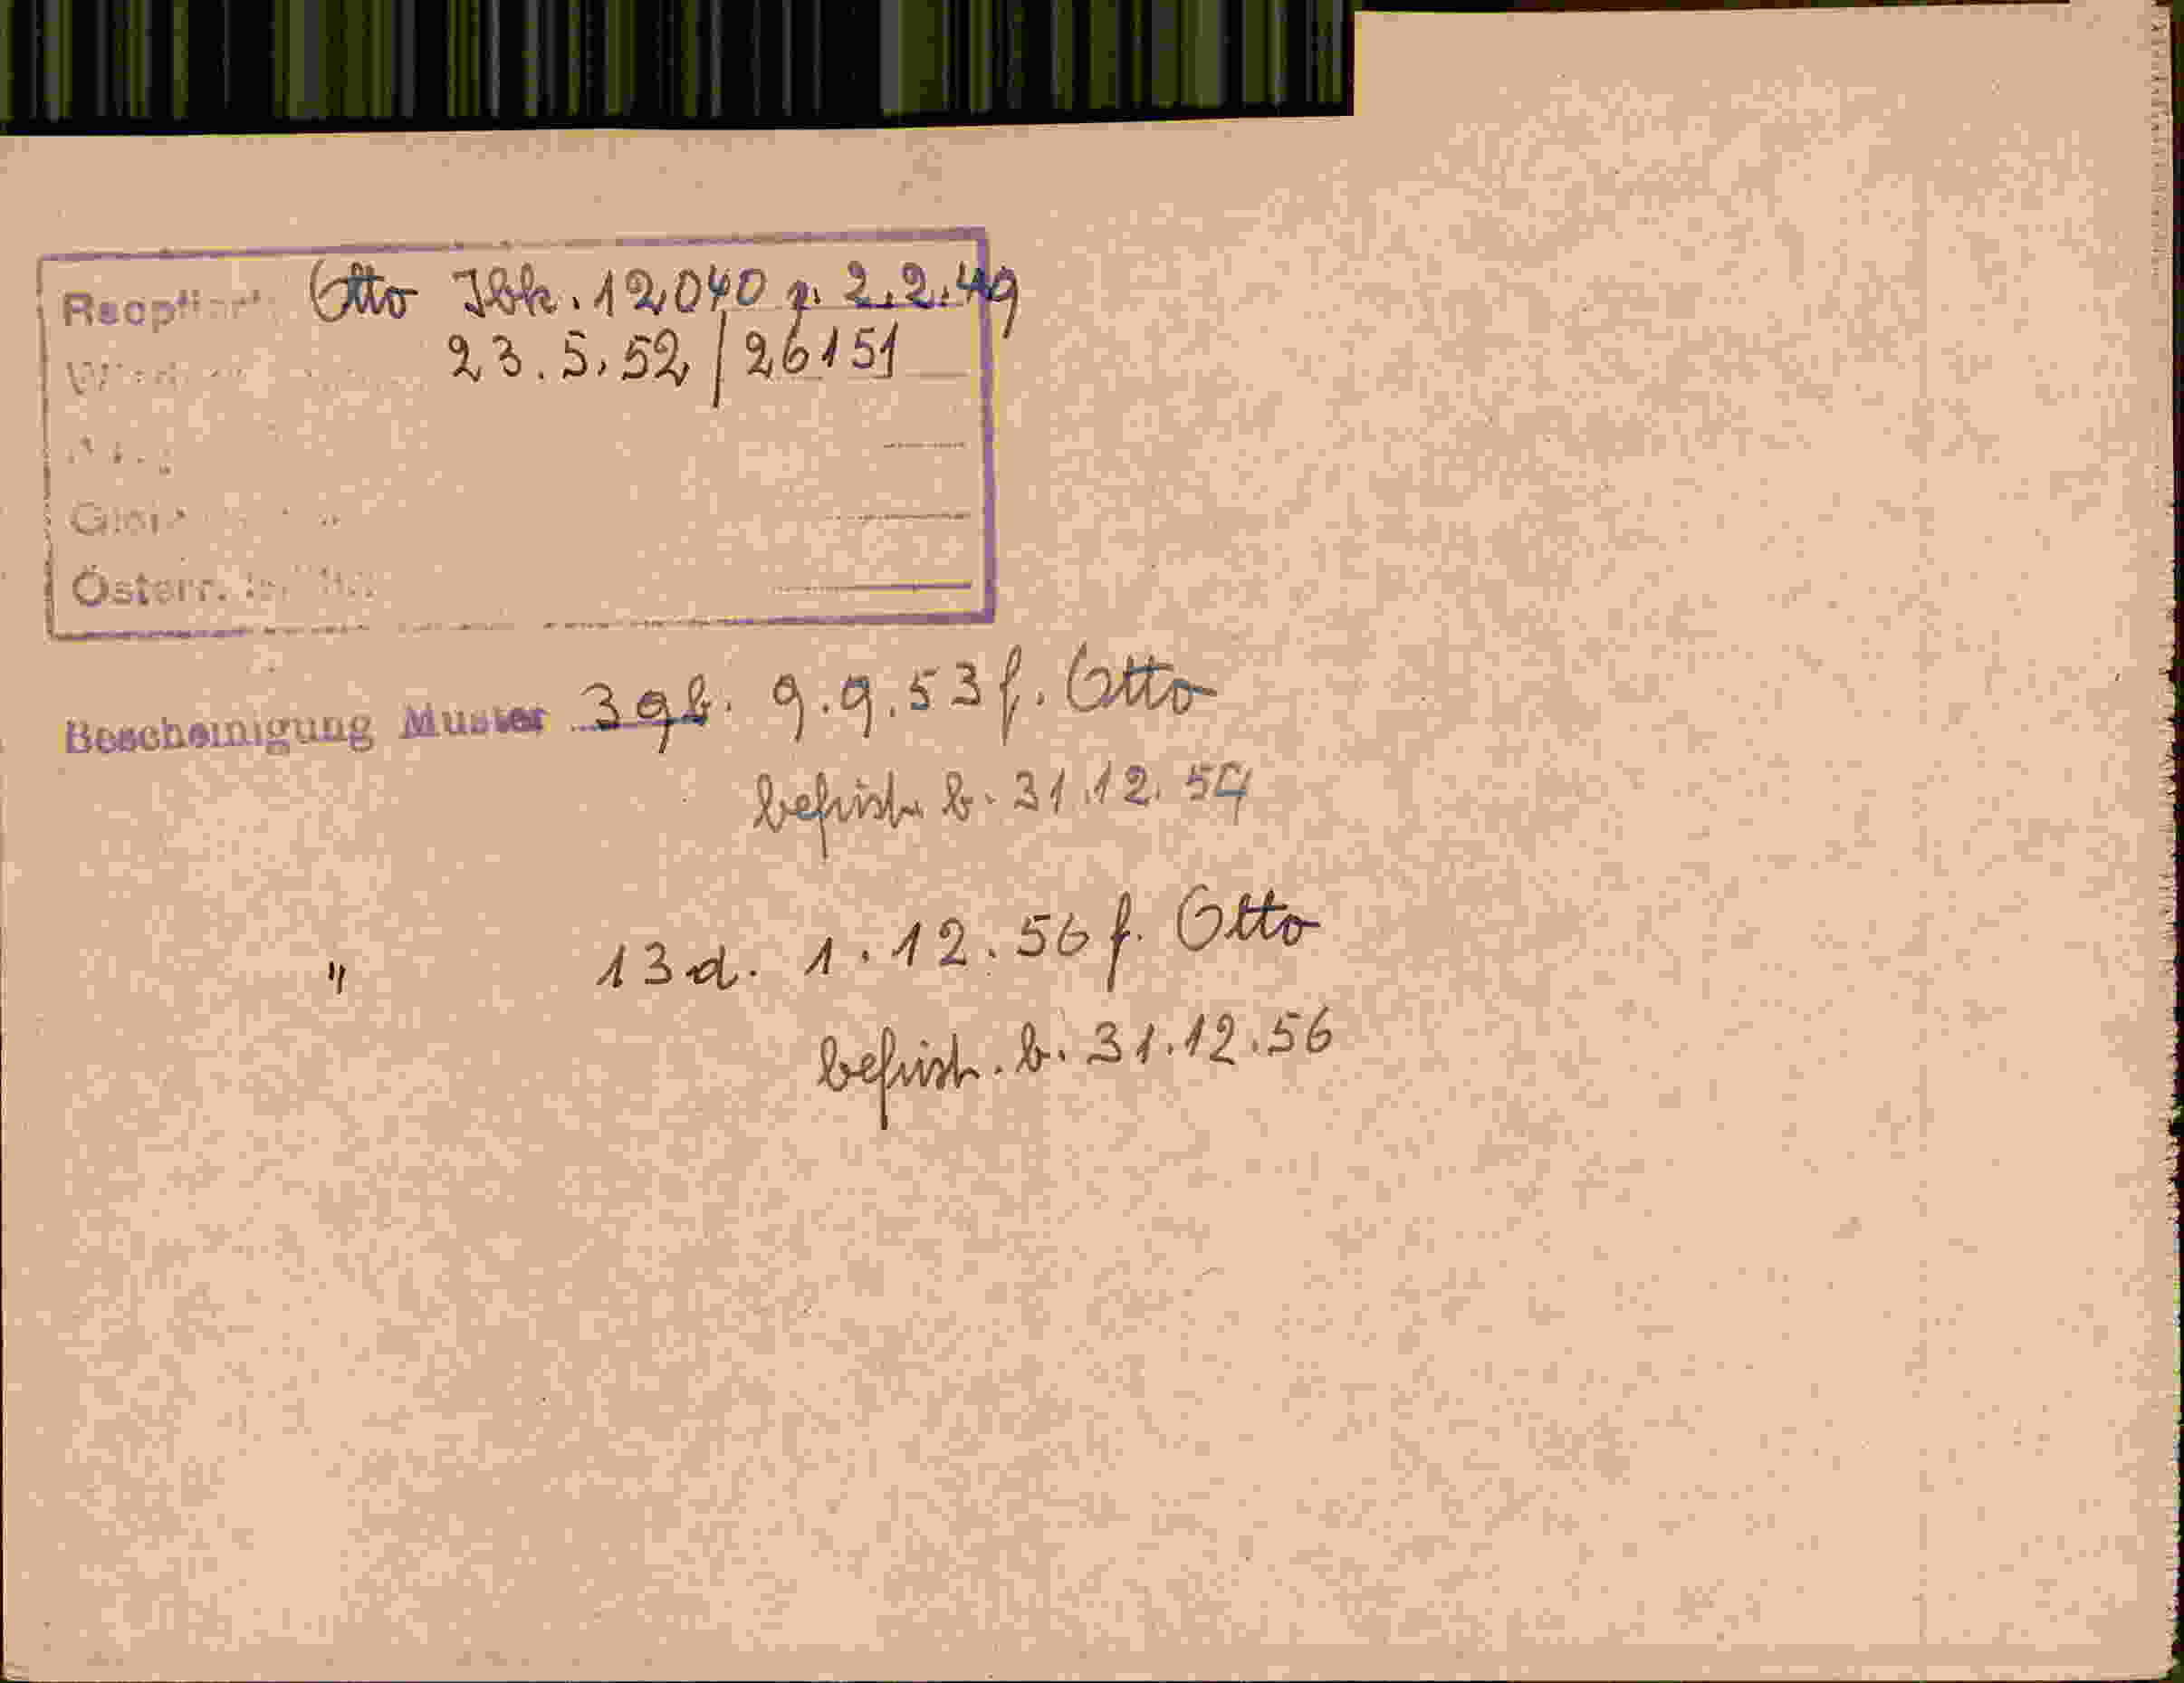 Otto Ibk. 12040 v. 2.2.49
23.5.52 / 26151
Österr.
Bescheinigung Muster 39b. 9.9.53 f. Otto
befrist. b. 31.12.54
" 13d. 1.12.56 f. Otto
befrist. b. 31.12.56